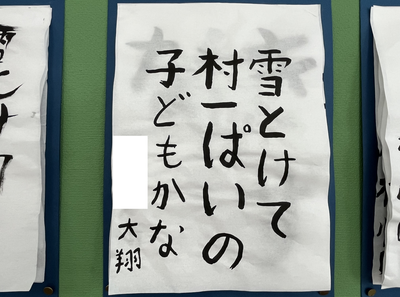 雪とけて
村一ぱいの
子どもかな
大翔